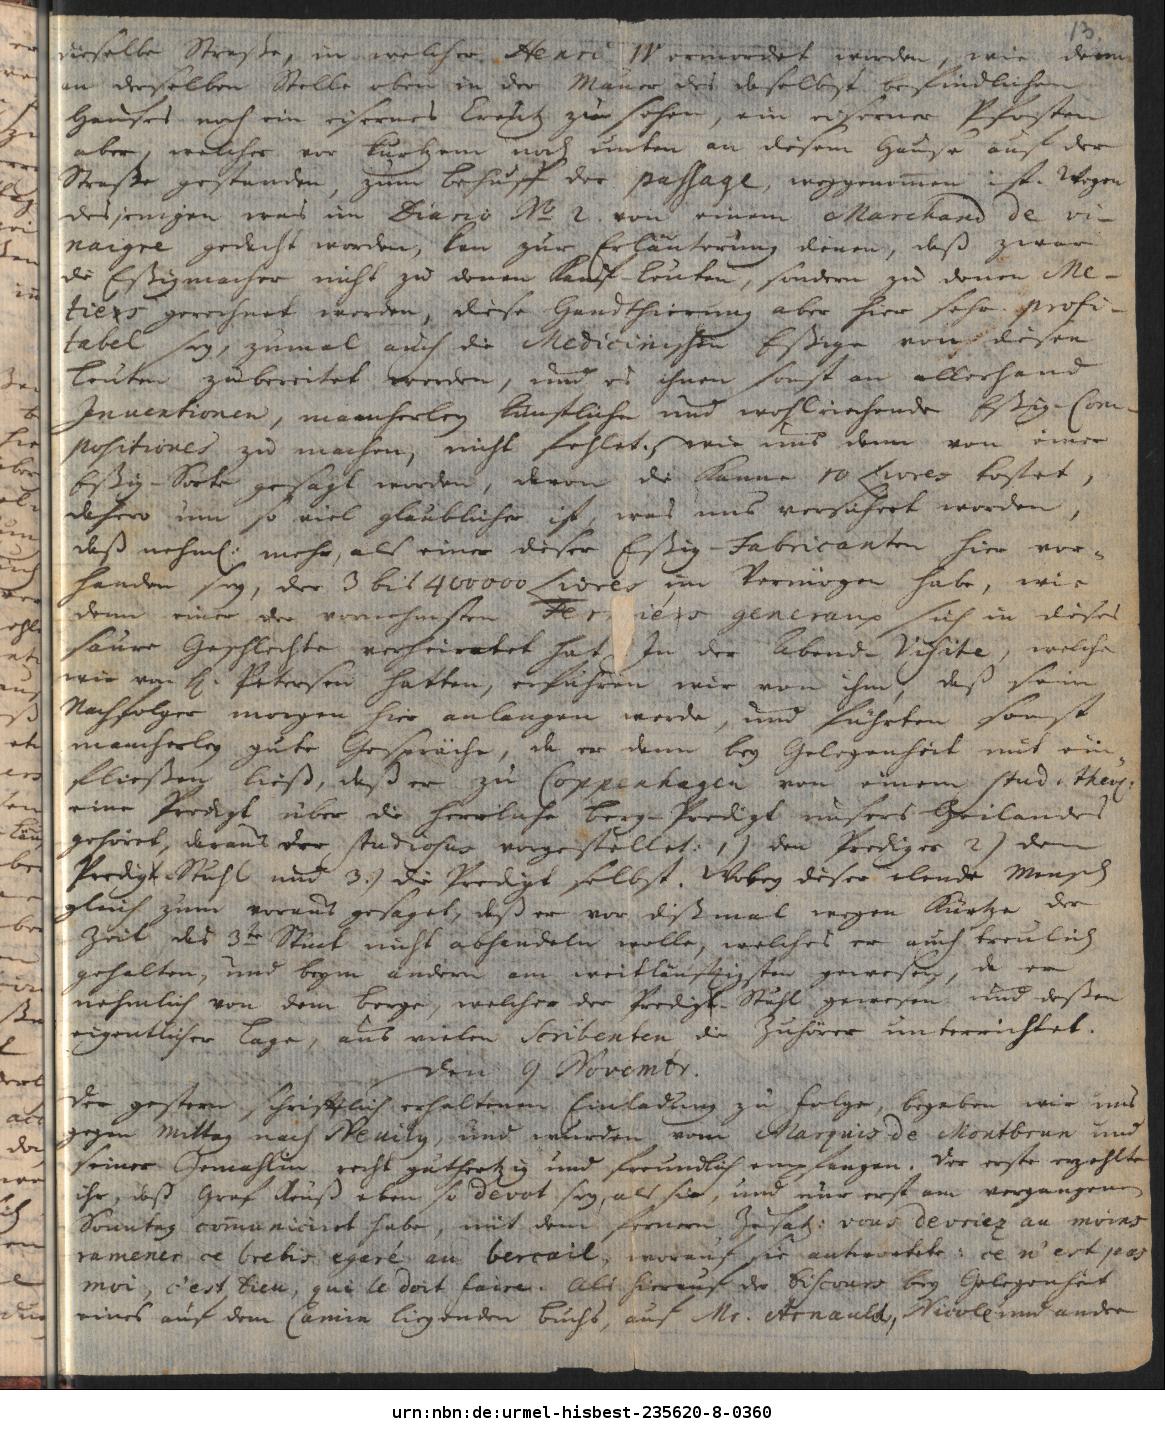 13.
dieselbe Straße, in welcher Henri IV ermordet worden, wie denn
an derselben Stelle oben in der Mauer des daselbst befindlichen
Hauses noch ein eisernes Creutz zu sehen, ein eiserner Pfosten
aber, welcher vor kurtzem noch unten an diesem Hause auf der
Straße gestanden, zum behuff der passage, weggenommen ist. Wegen
desjenigen was im Diario No 2. von einem Marchand de vi-
naigre gedacht worden, kan zur Erläuterung dienen, daß zwar
die Eßigmacher nicht zu denen Kauf-Leuten, sondern zu denen Me-
tiers gerechnet werden, diese Handthierung aber hier sehr profi-
tabel sey, zumal auch die Medicinischen Eßige von diesen
Leuten zubereitet werden, und es ihnen sonst an allerhand
Inventionen, mancherley künstliche und wohlriechende Eßig-Com-
positiones zu machen, nicht fehlet. wie uns denn von einer
Eßig-Sorte gesagt worden, davon die Kanne 10 Livres kostet,
dahero um so viel glaublicher ist, was uns versichert worden,
daß nehml: mehr, als einer dieser Eßig-Fabricanten hier vor-
handen sey, der 3 bis 400000 Livres im Vermögen habe, wie
denn einer der vornehmsten Fermiers generaux sich in dieses
saure Geschlechte verheiratet hat. In der Abend-Visite, welche
wir von H. Petersen hatten, erfuhren wir von ihm, daß sein
Nachfolger morgen hier anlangen werde, und führten sonst
mancherley gute Gespräche, da er denn bey Gelegenheit mit ein-
fließen ließ, daß er zu Coppenhagen von einem stud. theol:
eine Predigt über die herrliche Berg-Predigt unsers Heilandes
gehöret, daraus der studiosus vorgestellet: 1) den Prediger 2) den
Predigt-Stuhl und 3.) die Predigt selbst. Wobey dieser elende Mensch
gleich zum voraus gesaget, daß er vor dißmal wegen Kürtze der
Zeit das 3te Stück nicht abhandeln wolle, welches er auch treulich
gehalten, und beym andern am weitläuftigsten gewesen, da er
nehmlich von dem Berge, welcher der Predigt-Stuhl gewesen und deßen
eigentlicher Lage, aus vielen Scribenten die Zuhörer unterrichtet.
den 9 Novembr.
Der gestern schriftlich erhaltenen Einladung zu folge, begaben wir uns
gegen Mittag nach Neuily, und wurden vom Marquis de Montbrun und
seiner Gemahlin recht gutherzig und freundlich empfangen. Der erste erzehlte
ihr, daß Graf Reuß eben so devot sey, als sie, und nur erst am vergangenen
Sonntag communiciret habe, mit dem fernern Zusatz: vous devriez au moins
ramener ce brebis egaré au bercail, worauf sie antwortete: ce n'est pas
moi, c'est Dieu, qui le doit faire. Als hierauf der Discours bey Gelegenheit
eines auf dem Camin liegenden Buchs, auf Mr. Arnauld, Nicole und andere
urn:nbn:de:urmel-hisbest-235620-8-0360